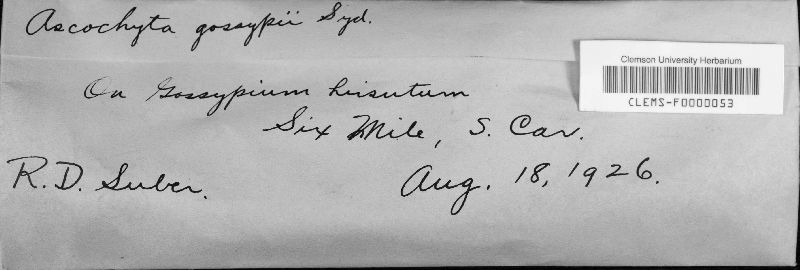 Ascochyta gossypii Syd.
Clemson University Herbarium
CLEMS-F0000053
On Gossypium hirsutum
Six Mile, S. Car.
R. D. Suber.
Aug. 18, 1926.